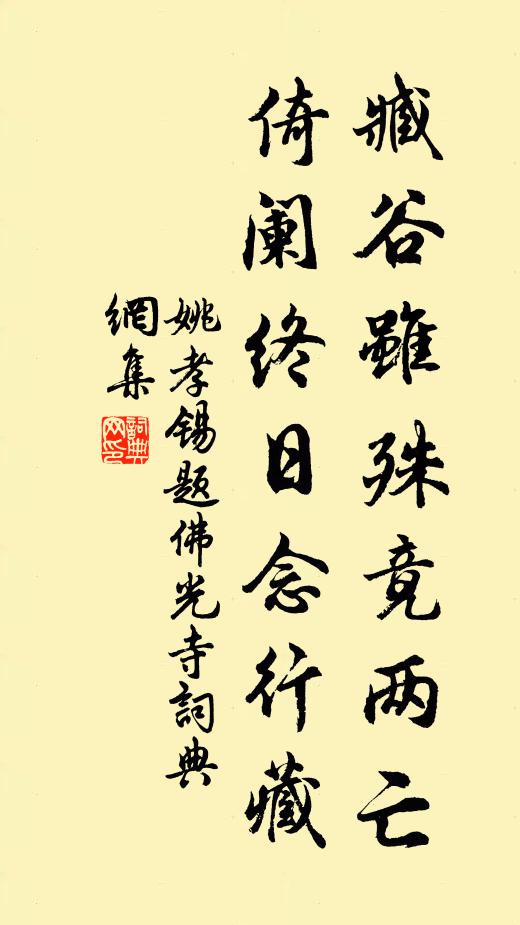 臧谷雖殊竟两亡
倚阑终日念行藏
姚孝锡题佛光寺詞典
網集
詞典
网印